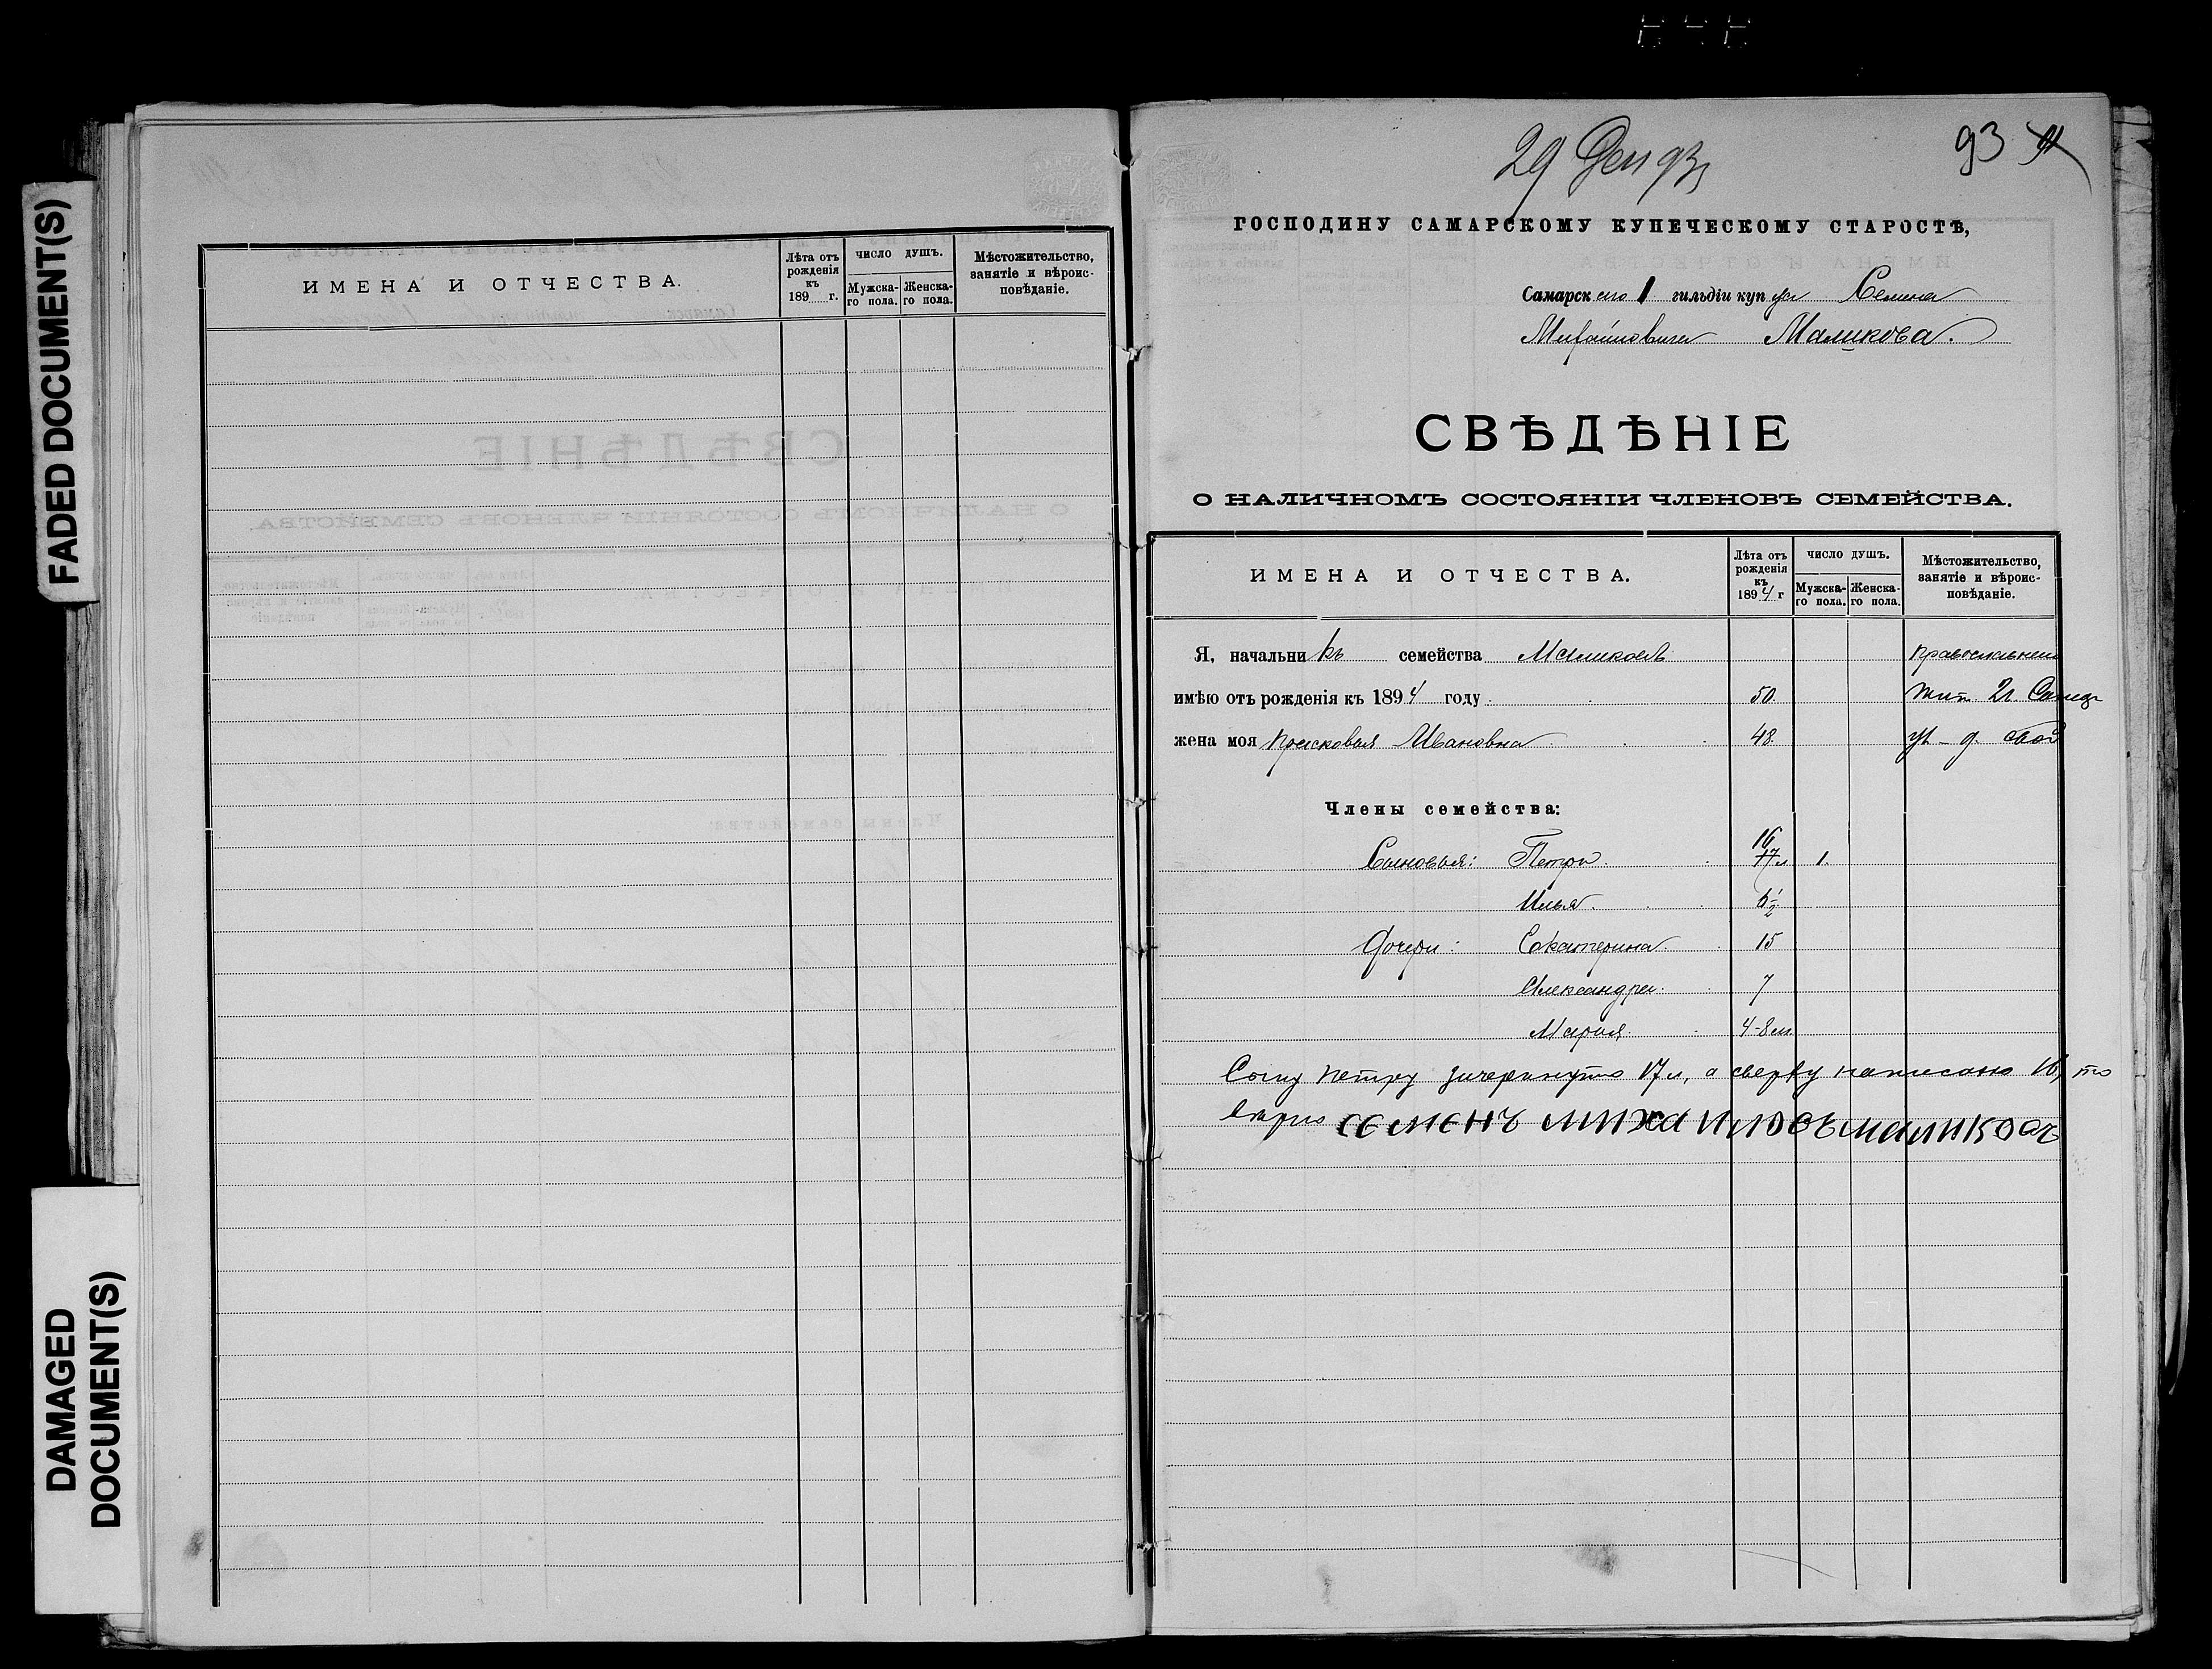 FADED DOCUMENT(S)
DAMAGED
DOCUMENT(S)
ИМЕНА И ОТЧЕСТВА.
Лѣта отъ
рожденія
къ
189 г.
ЧИСЛО ДУШЪ.
Мужска-
го пола.
Женска-
го пола.
Мѣстожительство,
занятіе и вѣроис-
повѣданіе.
29 Дек 93
93
ГОСПОДИНУ САМАРСКОМУ КУПЕЧЕСКОМУ СТАРОСТѢ,
Самарскаго 1 гильдіи купца Семена
Михайловича Маликова.
СВѢДѢНІЕ
О НАЛИЧНОМЪ СОСТОЯНІИ ЧЛЕНОВЪ СЕМЕЙСТВА.
ИМЕНА И ОТЧЕСТВА.
Лѣта отъ
рожденія
къ
1894 г
ЧИСЛО ДУШЪ.
Мужска-
го пола.
Женска-
го пола.
Мѣстожительство,
занятіе и вѣроис-
повѣданіе.
Я, начальникъ семейства Маликовъ
имѣю отъ рожденія къ 1894 году 50
жена моя Прасковья Ивановна 48
Члены семейства:
16
Сыновья: Петръ 17 л 1.
Илья
Дочери: Екатерина 15
Александра 7
Марья 4-8 м.
Сыну Петру зачеркнуто 17 л, а сверху написано 16, то
вѣрно семенъ михаиловъ маликовъ